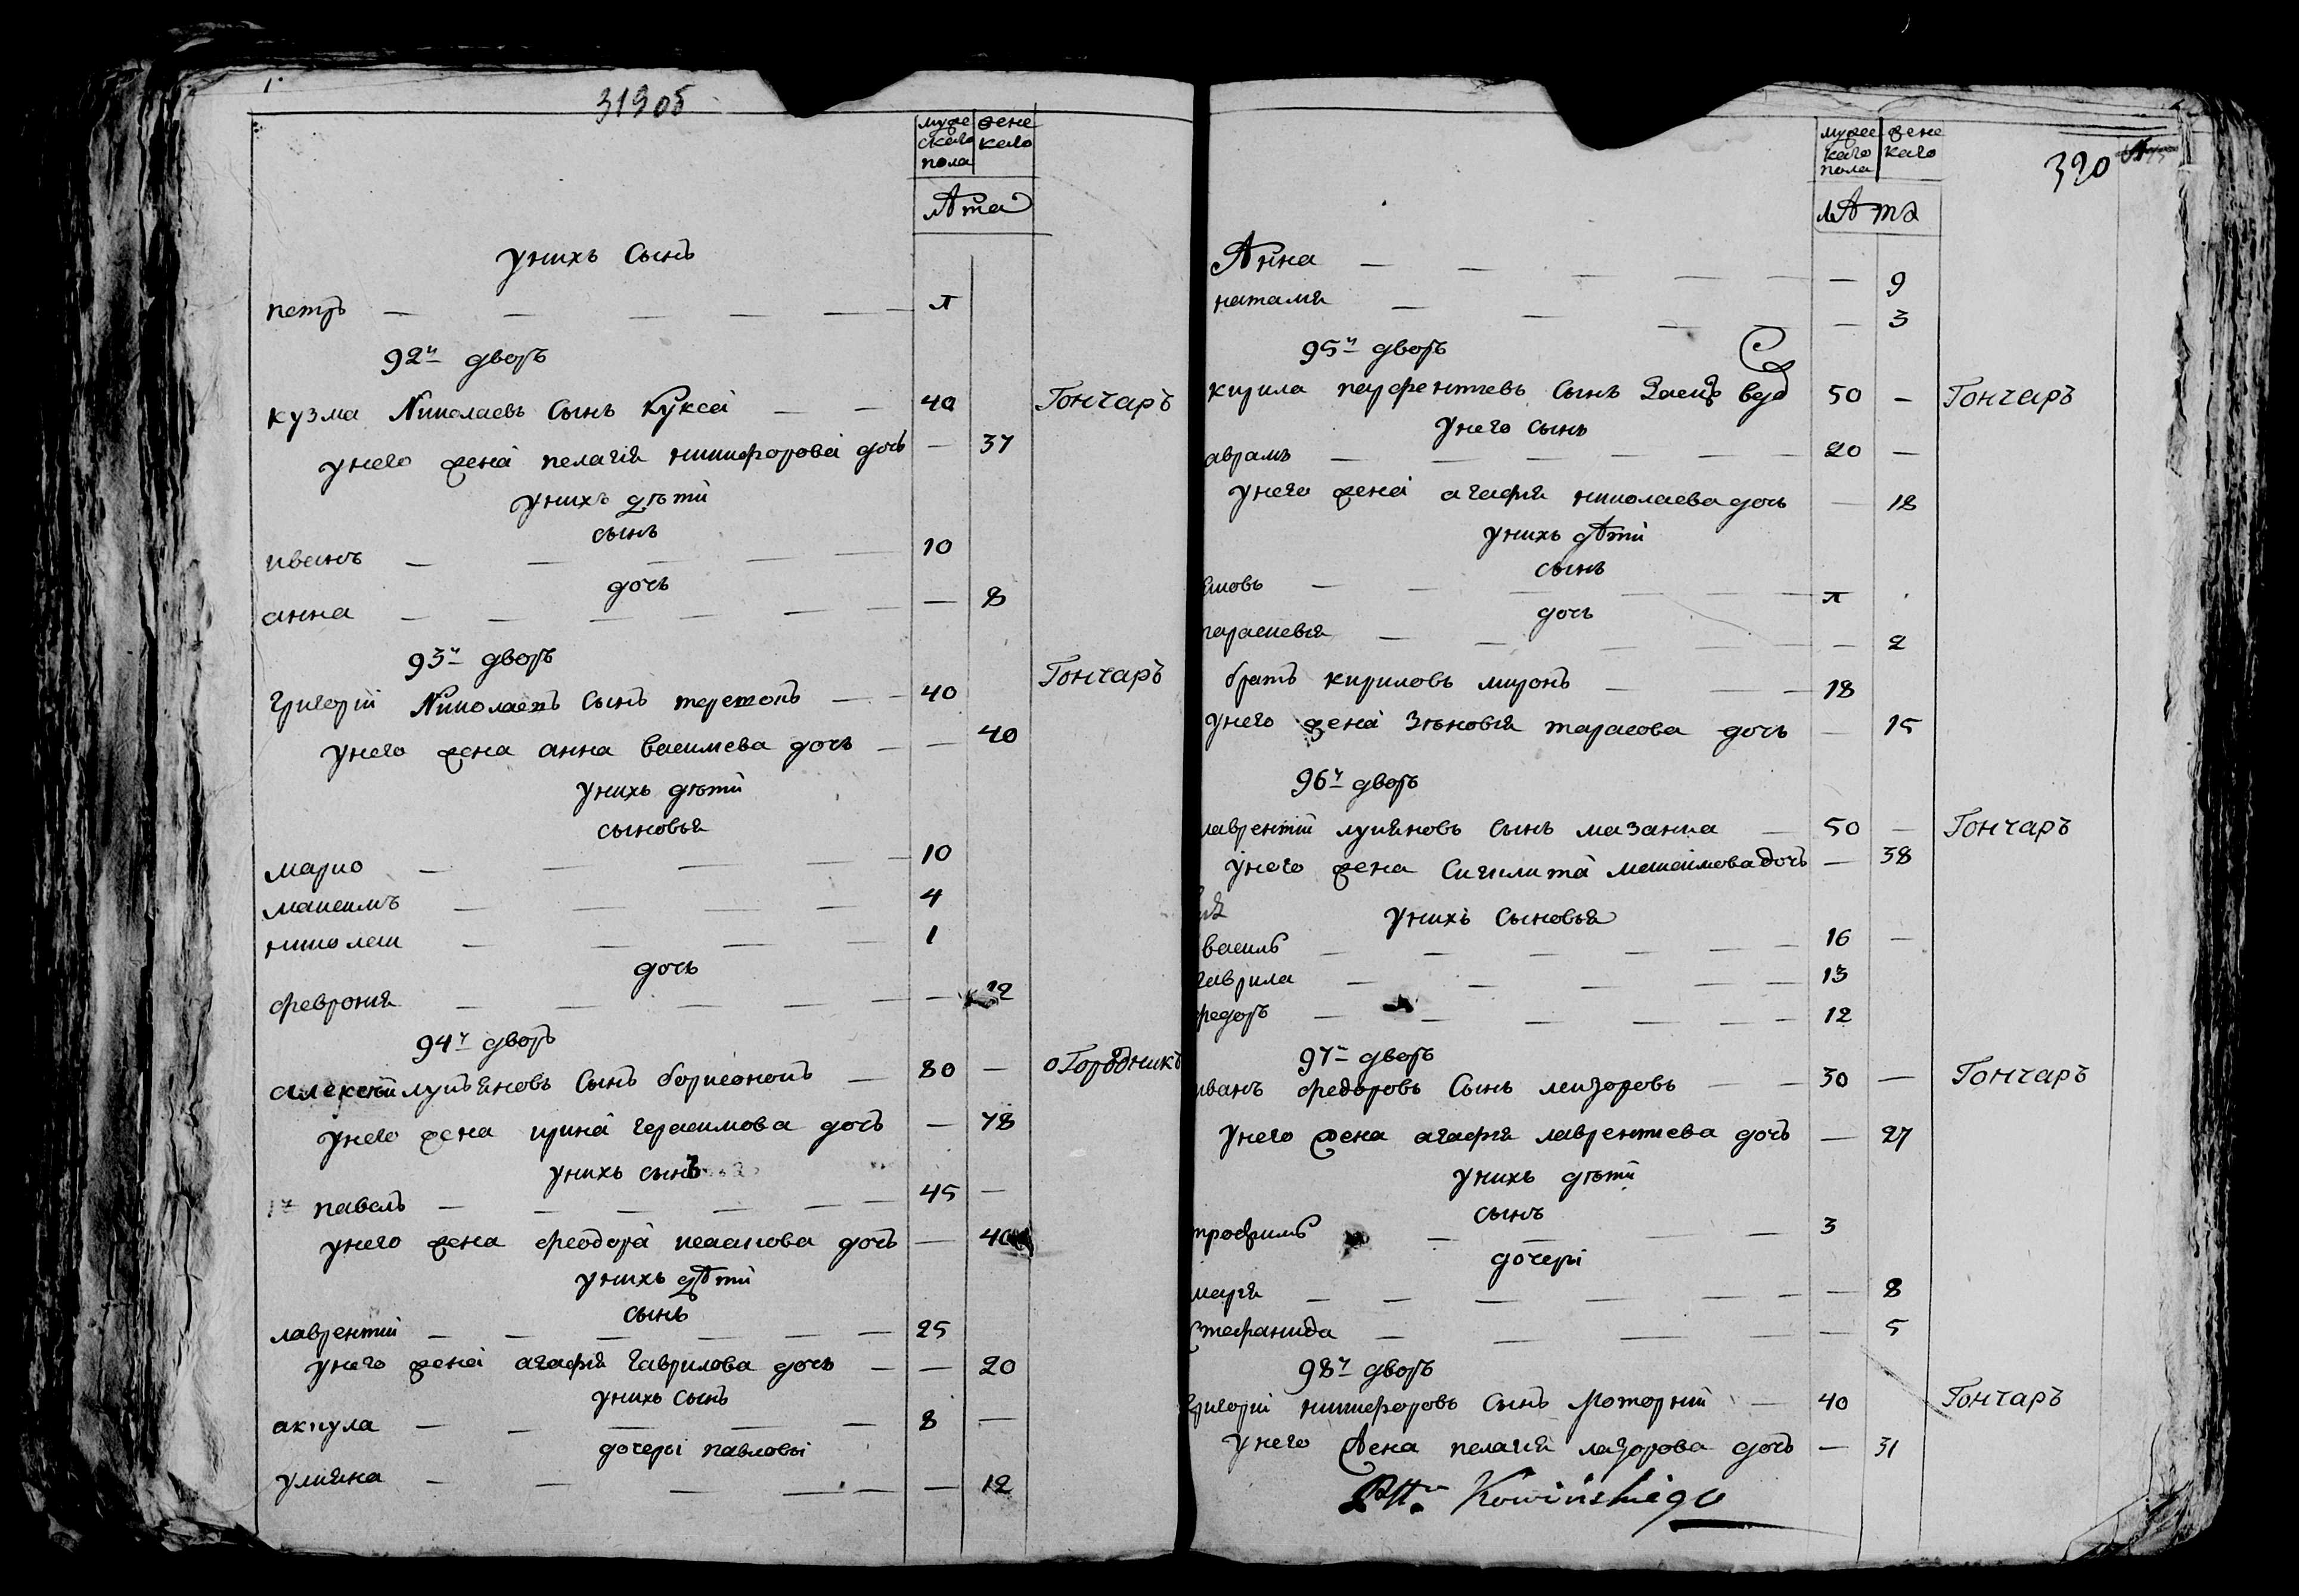 319об
мужескаго пола
женскаго
лѣта
у нихъ сынъ
петръ — — — — — п
92й дворъ
кузма Николаевъ сынъ Кукса — — 40 Гончаръ
у него жена пелагія никифорова дочь — 37
у нихъ дѣти
сынъ
иванъ — — — — 10
дочь
анна — — — — — — 8
93й дворъ
григорій Николаевъ сынъ — 40 Гончаръ
у него жена анна василиева дочь — — 40
у нихъ дѣти
сыновья
марко — — — — 10
максимъ — — — — 4
николаи — — — — 1
дочь
феврония — — — — — — 12
94й дворъ
алексѣй лукъяновъ сынъ — 80 — оГородникъ
у него жена ирина герасимова дочь — 78
у нихъ сынъ
павелъ — — — — — 45 —
у него жена феодора исакова дочь — 40
у нихъ дѣти
сынъ
лаврентий — — — — — — 25
у него жена агафія гаврилова дочь — — 20
у нихъ сынъ
акила — — — — — 8 —
дочери павловы
улияна — — — — — — 12
320
мужескаго пола
женскаго
лѣта
Анна — — — — — — 9
наталия — — — — 3
95й дворъ
кирила парфентиевъ сынъ Заецъ вдо 50 — Гончаръ
у него сынъ
аврамъ — — — — — 20 —
у него жена агафия николаева дочь — 18
у нихъ дѣти
сынъ
яковъ — — — — — п
дочь
параскевия — — — — — 2
братъ кириловъ миронъ — — — 18
у него жена Зѣновія тарасова дочь — 15
96й дворъ
лаврентий лукяновъ сынъ мазанка — 50 — Гончаръ
у него жена Сиклита максимова дочь — 38
у нихъ сыновья
василь — — — — — 16 —
гаврила — — — — 13
федоръ — — — — — — 12
97й дворъ
иванъ федоровъ сынъ — — 30 — Гончаръ
у него жена агафия лаврентиева дочь — 27
у нихъ дѣти
сынъ
трофимъ — — — — 3
дочери
мария — — — — — — — 8
стефанида — — — — — 5
98й дворъ
григорій никифоровъ сынъ Моторнiй — 40 Гончаръ
у него жена пелагия лазорова дочь — 31
Kowińskiego